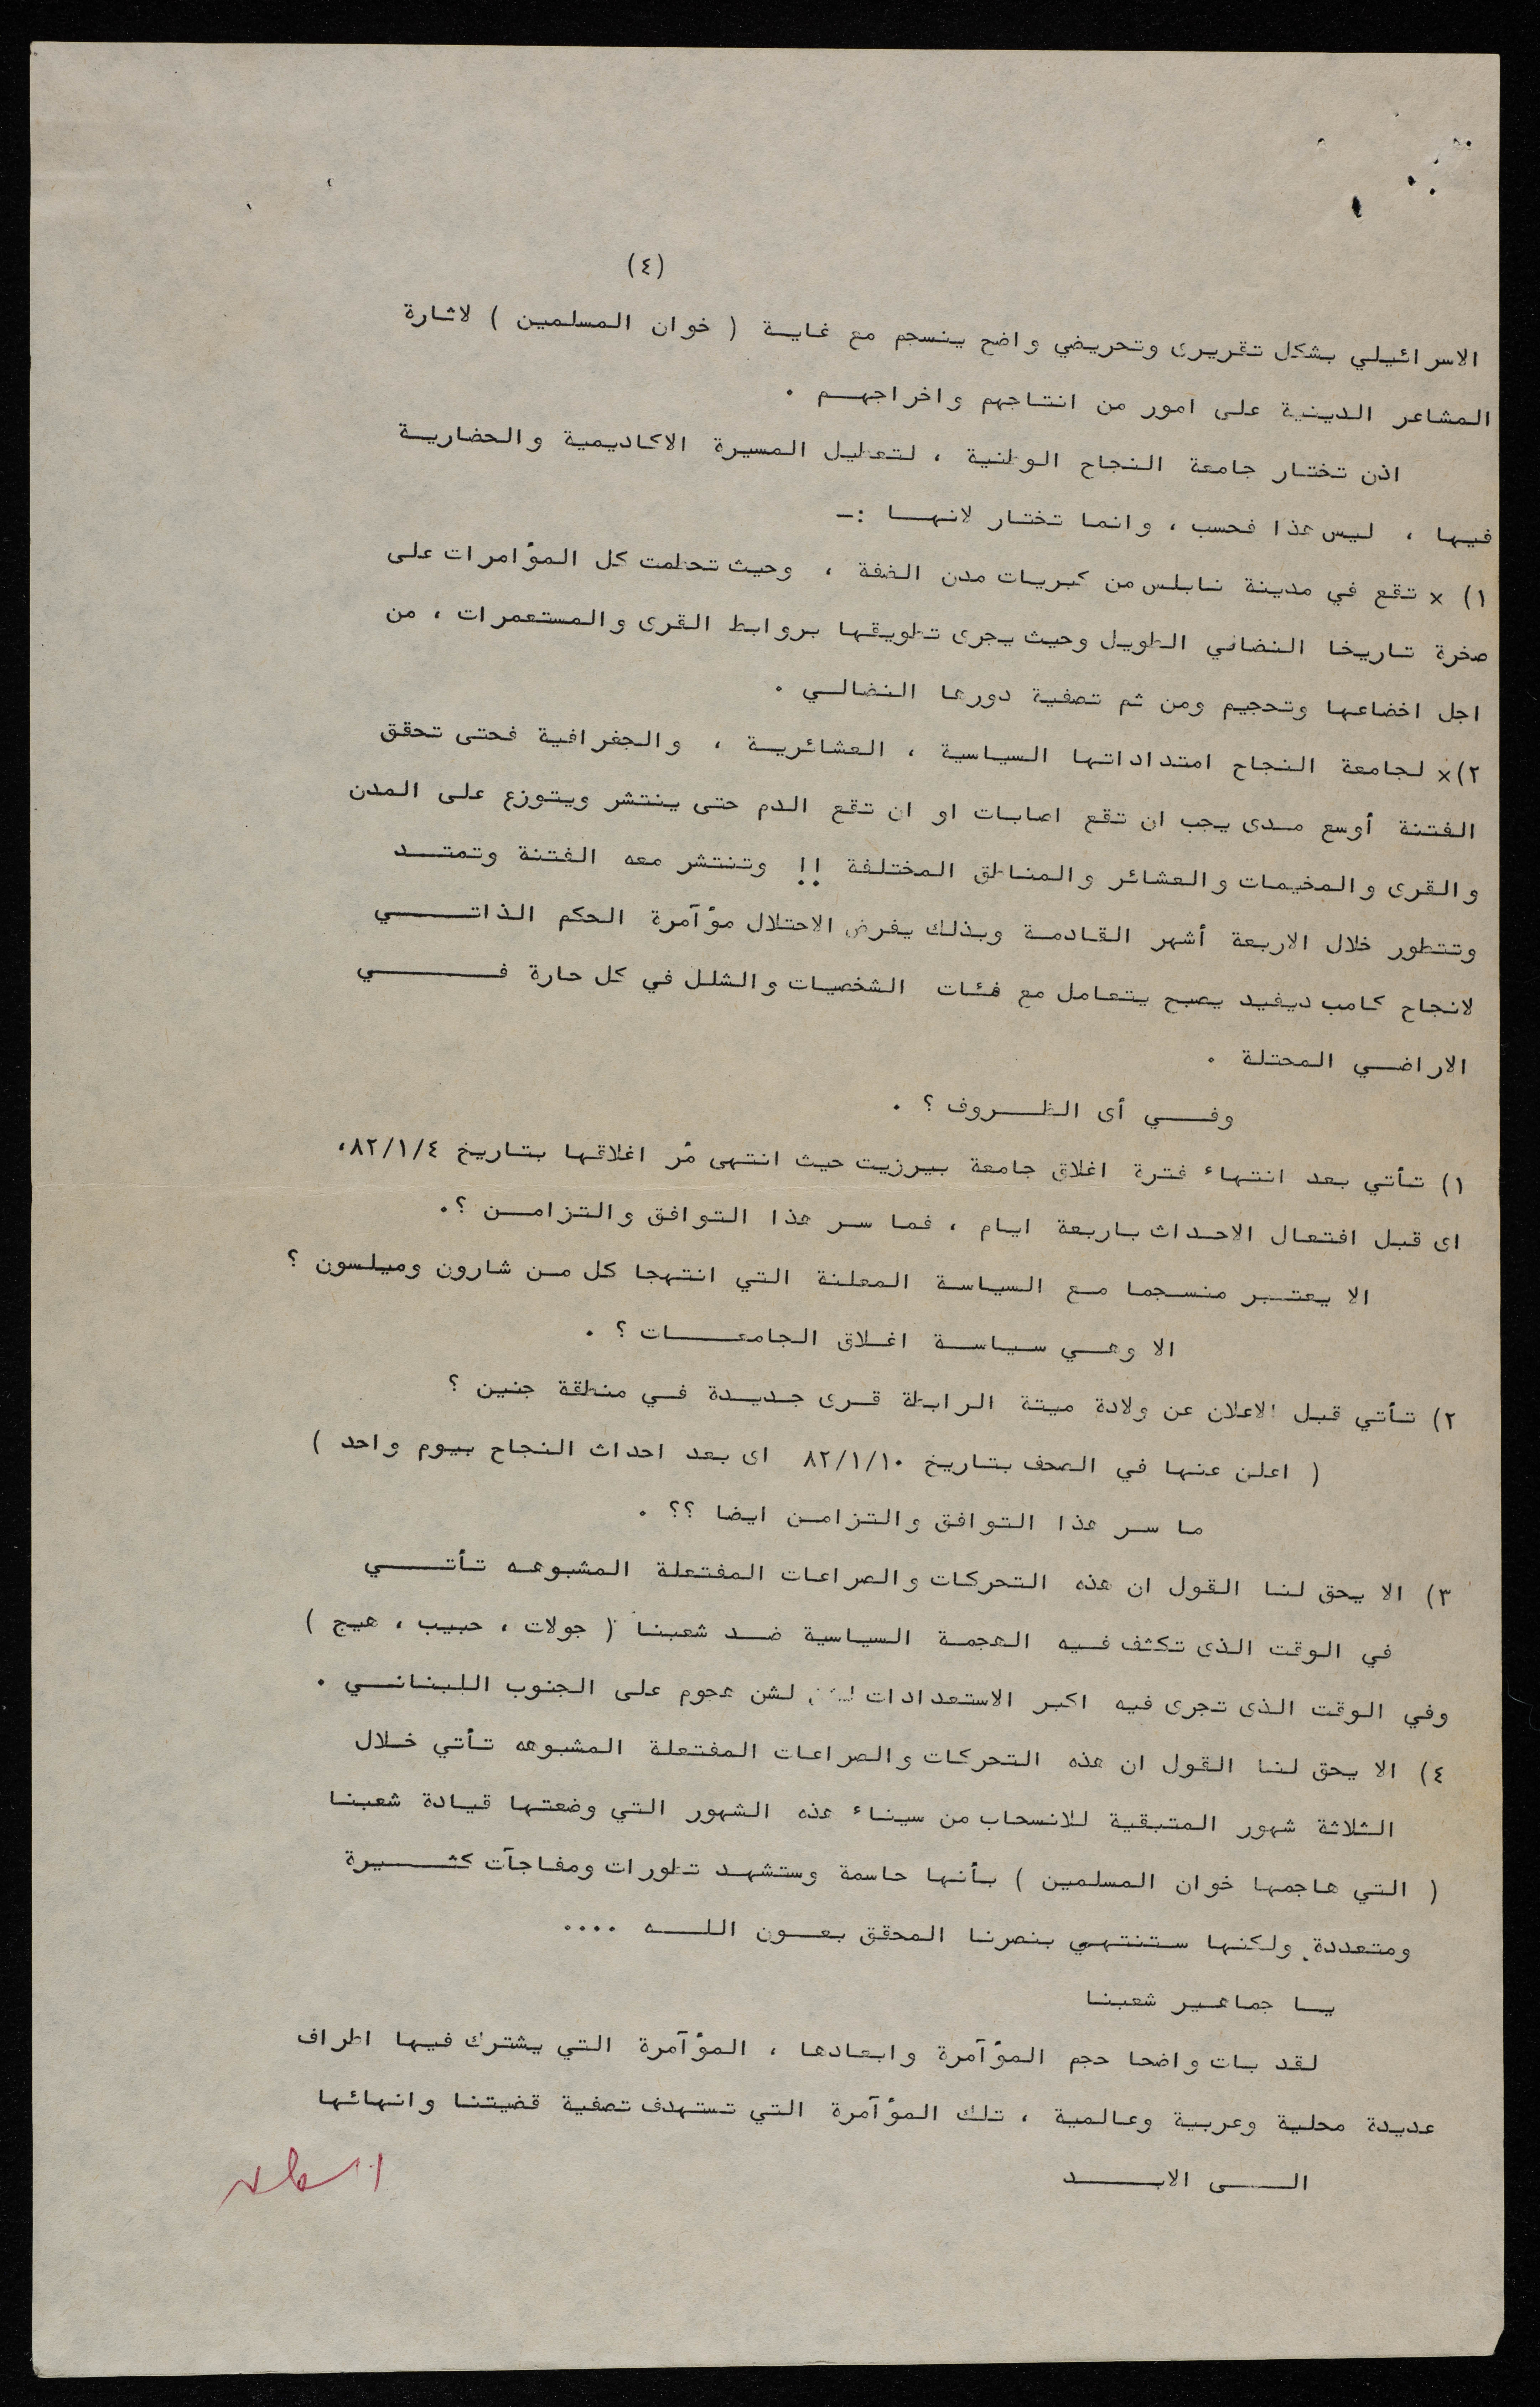 (٤)
الاسرائيلي بشكل تقريرى وتحريضي واضح ينسجم مع غايـة ( خوان المسلمين ) لاثارة
المشاعر الدينية على امور من انتاجهم واخراجهـم .
اذن تختار جامعة النجاح الوطنية ، لتعطيل المسيرة الاكاديمية والحضاريـة
فيها ، ليس هذا فحسب ، وانما تختار لانهـا :ـ
١) × تقع في مدينة نابلس من كبريات مدن الضفة ، وحيث تحطمت كل المؤامرات على
صخرة تاريخا النضالي الطويل وحيث يجرى تطويقها بروابط القرى والمستعمرات ، من
اجل اخضاعها وتحجيم ومن ثم تصفية دورها النضالـي .
٢)× لجامعة النجاح امتداداتها السياسية ، العشائريـة ، والجغرافية فحتى تحقق
الفتنة أوسع مـدى يجب ان تقع اصابات او ان تقع الدم حتى ينتشر ويتوزع على المدن
والقرى والمخيمات والعشائر والمناطق المختلفة !! وتنتشر معه الفتنة وتمتـــد
وتتطور خلال الاربعة أشهر القادمـة وبذلك يفرض الاحتلال مؤآمرة الحكم الذاتــــي
لانجاح كامب ديفيد يصبح يتعامل مع فئات الشخصيات والشلل في كل حارة فــــــي
الاراضـي المحتلة .
وفـــي أى الظــروف ؟ .
١) تأتي بعد انتهاء فترة اغلاق جامعة بيرزيت حيث انتهى مُر اغلاقها بتاريخ ٨٢/١/٤،
اى قبل افتعال الاحـداث باربعة ايام ، فما سـر هذا التوافق والتزامــن ؟.
الا يعتـبر منسـجما مـع السياسـة المعلنة التي انتهجا كل مـن شارون وميلسون ؟
الا وهــي سـياسـة اغـلاق الجامعــــات ؟ .
٢) تأتي قبل الاعلان عن ولادة ميتة الرابطة قـرى جـديـدة فـي منطقة جنين ؟
( اعلن عنها في الصحف بتاريخ ٨٢/١/١٠ اى بعد احداث النجاح بيوم واحد )
مـا سـر هذا التوافق والتزامـن ايضا ؟؟ .
٣) الا يحق لنا القول ان هذه التحركات والصراعات المفتعلة المشبوهـه تـأتـــــي
في الوقت الذى تكثف فـيه الهجمـة السياسية ضـد شعبنا ( جولات ، حبيب ، هيج )
وفي الوقت الذى تجرى فيه اكبر الاستعدادات لشن هجوم على الجنوب اللبنانــي .
٤) الا يحق لنا القول ان هذه التحركات والصراعات المفتعلة المشبوهه تأتي خـلال
الثلاثة شهور المتبقية للانسحاب من سيناء هذه الشهور التي وضعتها قيـادة شعبنا
( التي هاجمها خوان المسلمين ) بـأنها حاسمة وستشهـد تطورات ومفاجآت كثـــيرة
ومتعددة ولكنها سـتنتهـي بنصرنـا المحقق بعــون اللـــه ....
يــا جماهـير شعبنـا
لقـد بـات واضحا حجم المؤآمرة وابعادها ، المؤآمرة التي يشترك فيها اطراف
عديدة محلية وعربية وعالمية ، تلك المؤآمرة التي تستهدف تصفية قضيتنا وانهائها
الــــى الابـــــد